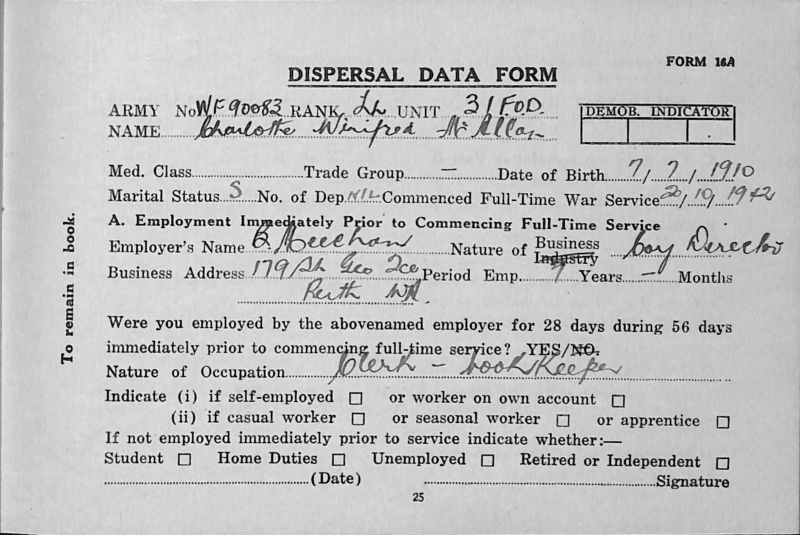 FORM 16A
DISPERSAL DATA FORM
ARMY No. WF90083 RANK Lt UNIT 31 F.O.D.
NAME Charlotte Winifred McAllan
DEMOB. INDICATOR
Med. Class Trade Group — Date of Birth 7/7/1910
Marital Status S No. of Dep. NIL Commenced Full-Time War Service 20/10/1942
A. Employment Immediately Prior to Commencing Full-Time Service
Employer's Name B. Meechan Nature of Business Industry Coy Director
Business Address 179 St Geo Tce Period Emp. 9 Years — Months
Perth WA.
Were you employed by the abovenamed employer for 28 days during 56 days
immediately prior to commencing full-time service? YES/NO.
Nature of Occupation Clerk - bookkeeper
Indicate (i) if self-employed □ or worker on own account □
(ii) if casual worker □ or seasonal worker □ or apprentice □
If not employed immediately prior to service indicate whether:—
Student □ Home Duties □ Unemployed □ Retired or Independent □
(Date) Signature
25
To remain in book.